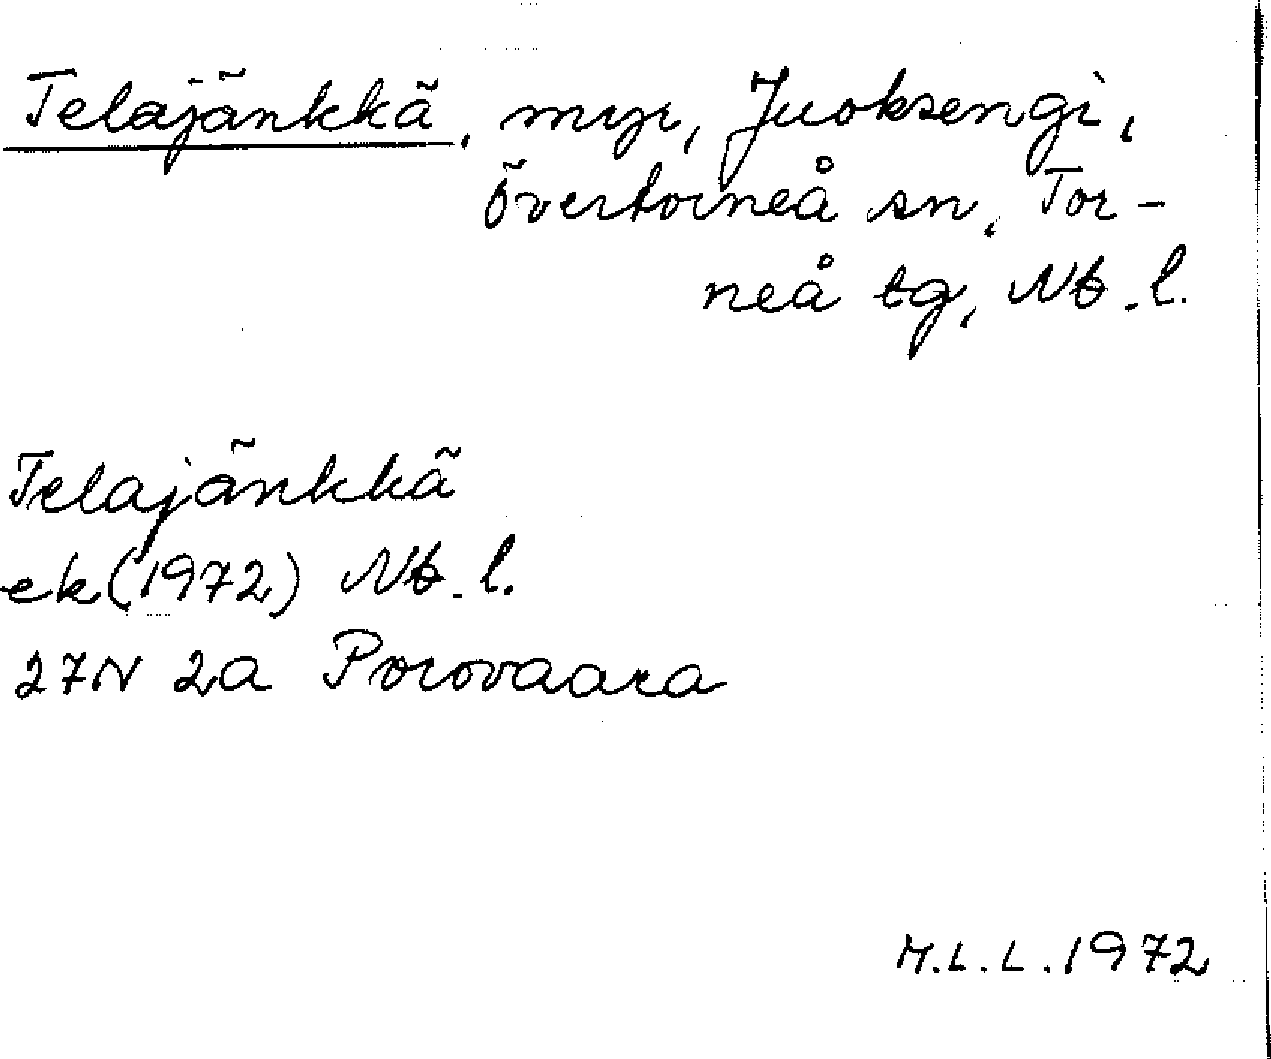 Telajänkkä, myr, Juoksengi,
Övertorneå sn, Tor-
neå tg, Nb. l.
Telajänkkä
ek (1972) Nb. l.
27N 2a Porovaara
M.L.L. 1972